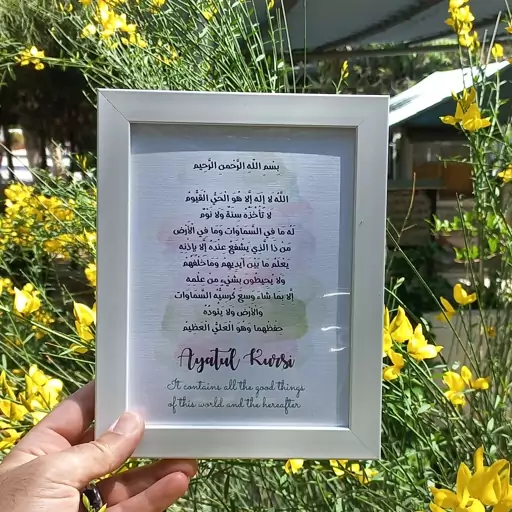 بِسْمِ اللَّهِ الرَّحْمَنِ الرَّحِيمِ
اللَّهُ لَا إِلَهَ إِلَّا هُوَ الْحَيُّ الْقَيُّومُ
لَا تَأْخُذُهُ سِنَةٌ وَلَا نَوْمٌ
لَهُ مَا فِي السَّمَاوَاتِ وَمَا فِي الْأَرْضِ
مَنْ ذَا الَّذِي يَشْفَعُ عِنْدَهُ إِلَّا بِإِذْنِهِ
يَعْلَمُ مَا بَيْنَ أَيْدِيهِمْ وَمَا خَلْفَهُمْ
وَلَا يُحِيطُونَ بِشَيْءٍ مِنْ عِلْمِهِ
إِلَّا بِمَا شَاءَ وَسِعَ كُرْسِيُّهُ السَّمَاوَاتِ
وَالْأَرْضَ وَلَا يَئُودُهُ
حِفْظُهُمَا وَهُوَ الْعَلِيُّ الْعَظِيمُ
Ayatul Kursi
It contains all the good things
of this world and the hereafter